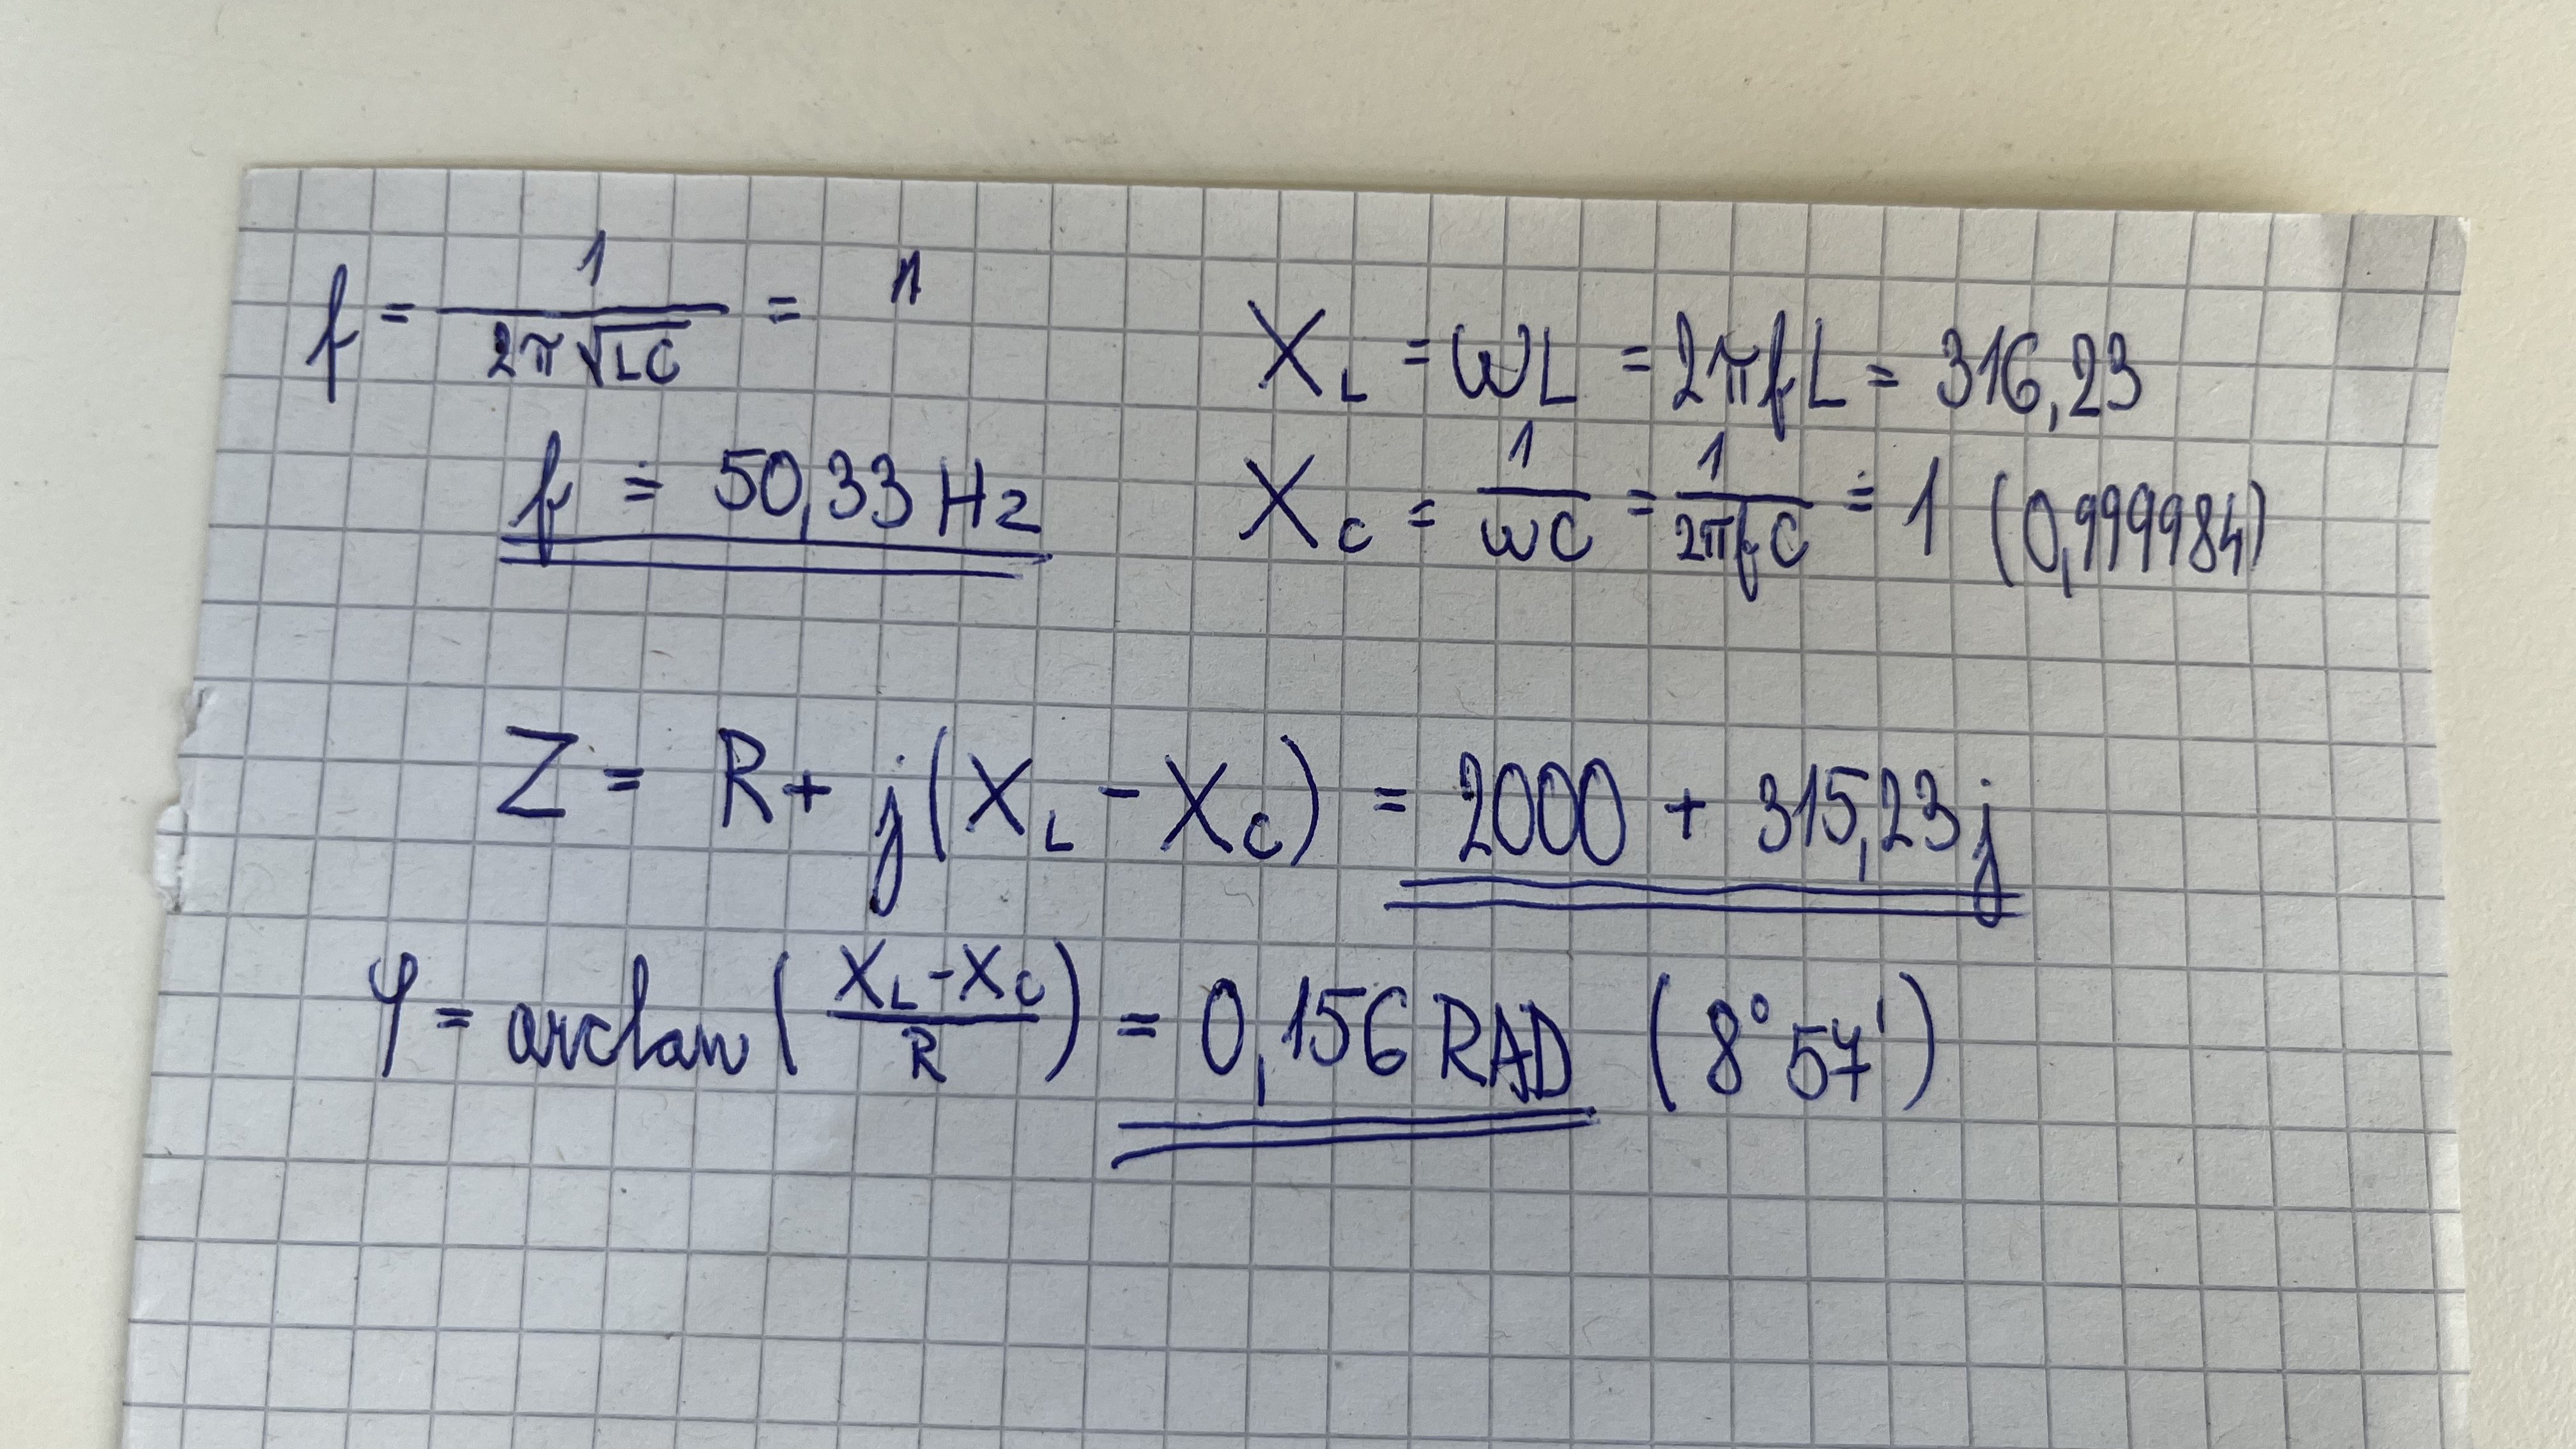 f = 1 / 2π√LC = 1
f ≐ 50,33 Hz
X_L = ωL = 2πfL = 316,23
X_C = 1 / ωC = 1 / 2πfC ≐ 1 (0,999984)
Z = R + j(X_L - X_C) = 2000 + 315,23j
φ = arctan( X_L - X_C / R ) = 0,156 RAD (8° 57')